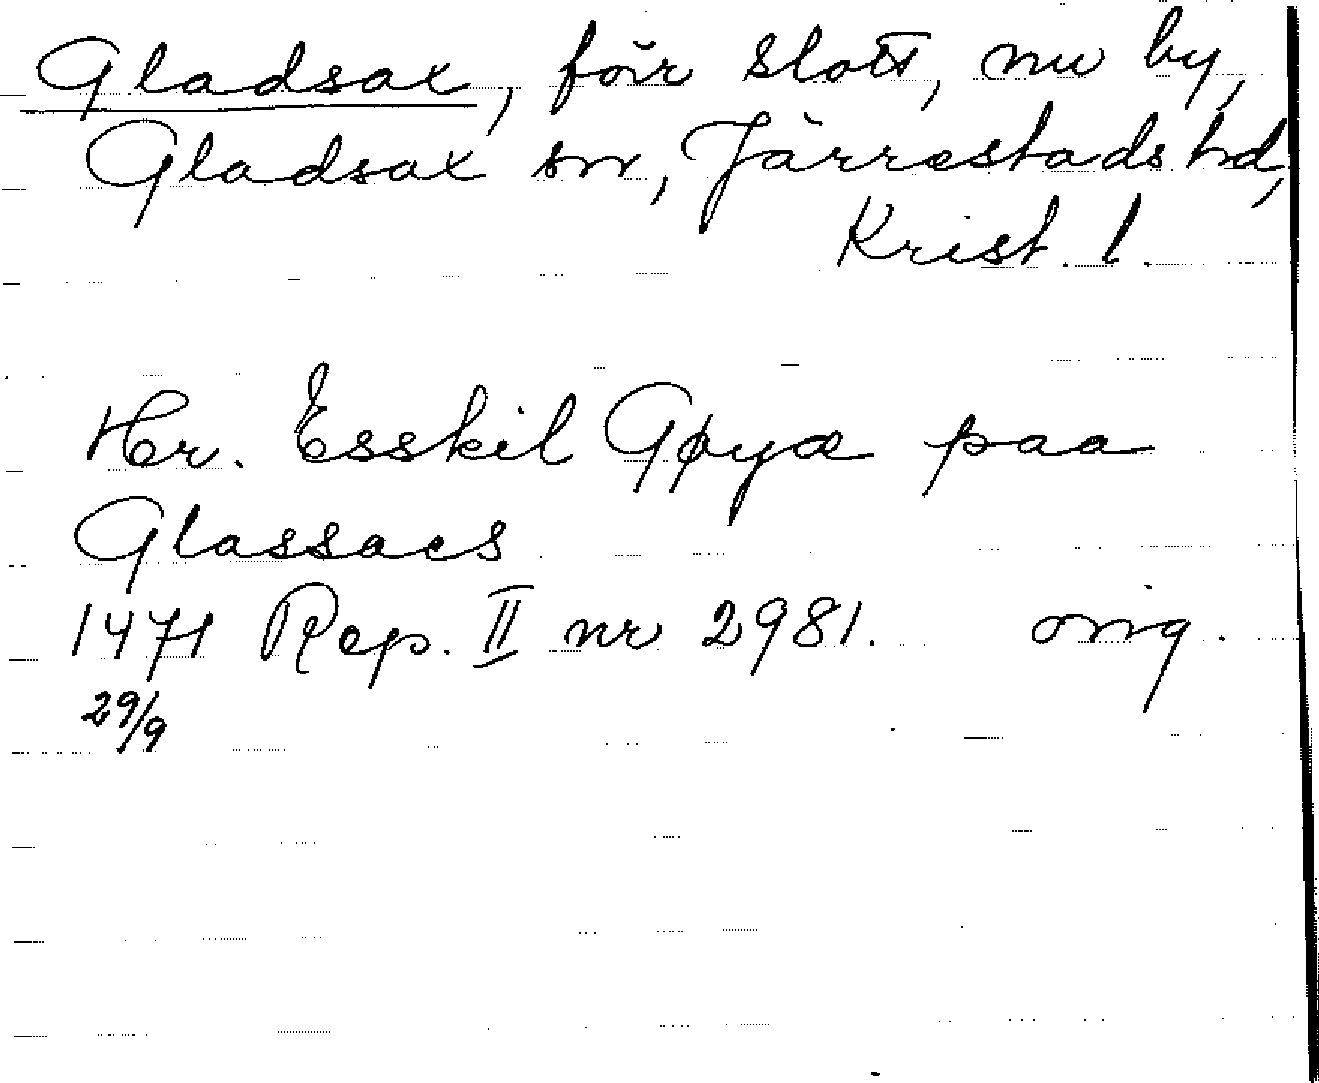 Gladsax, förr slott, nu by,
Gladsax sn, Järrestads hd,
Krist. l.
Hr. Esskil Gøyæ paa
Glassacs
1471 Rep. II nr 2981. orig.
29/9